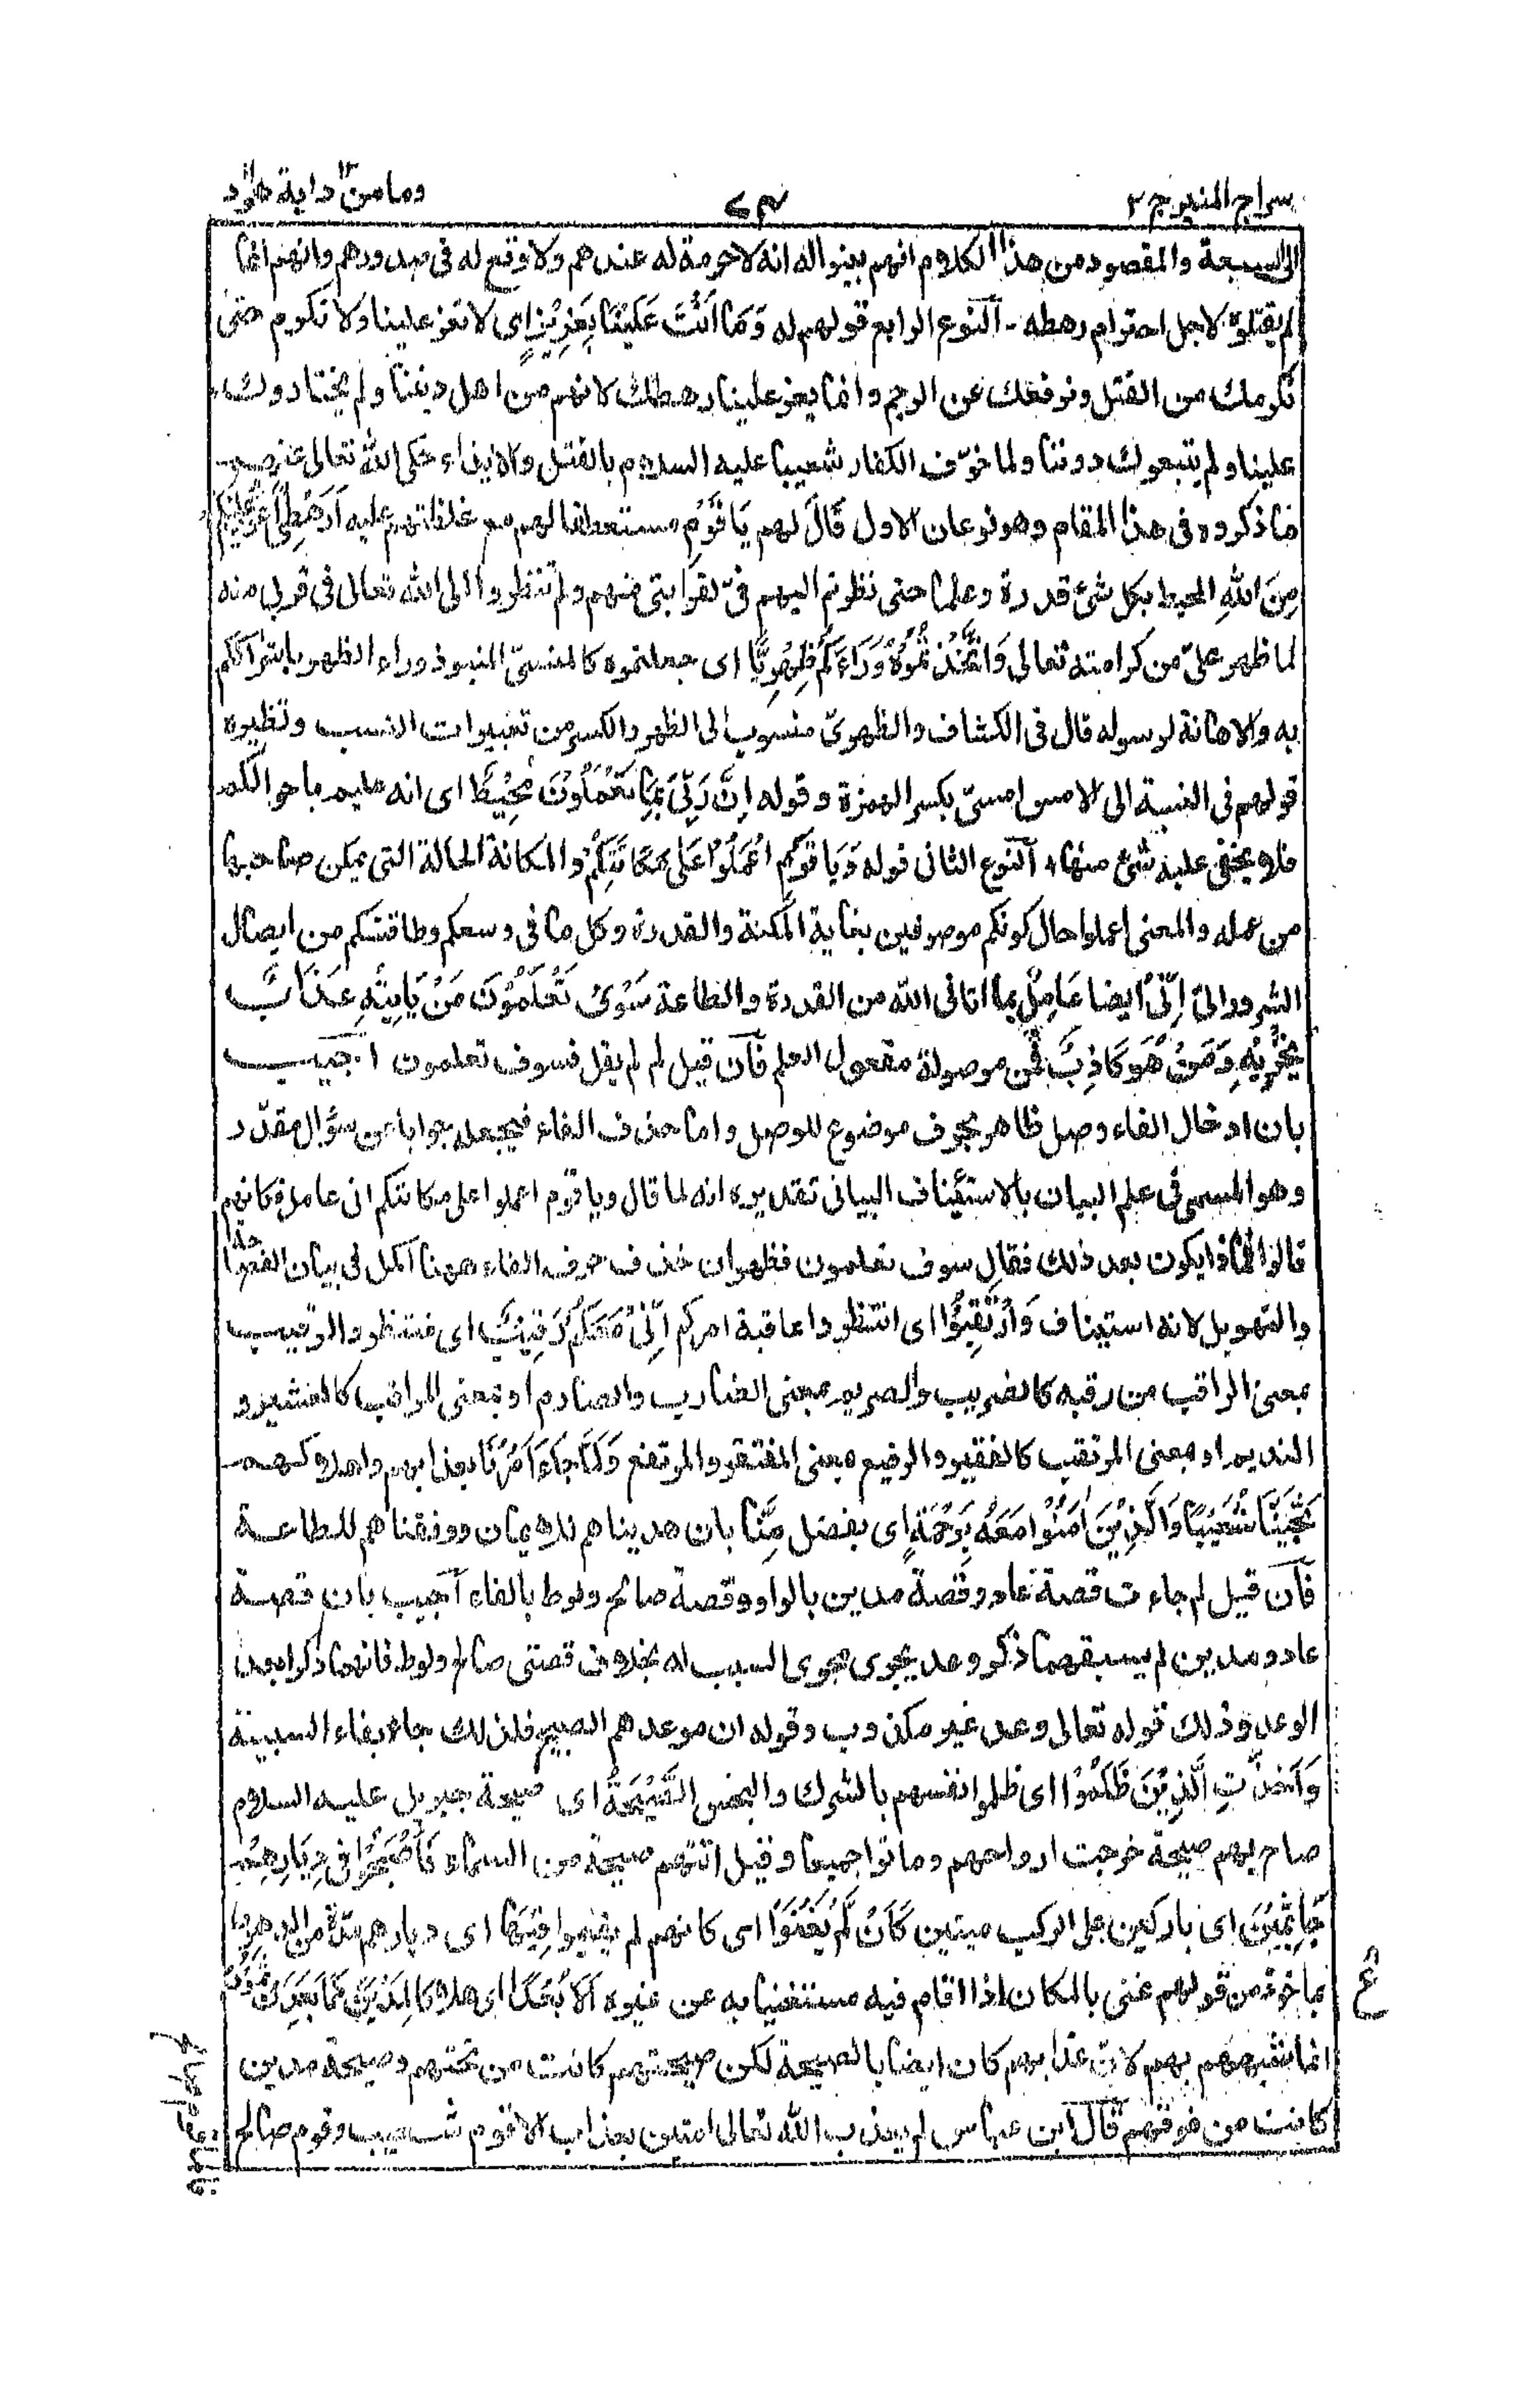 سراج المنير ج ٢
٧٤
وما من دابة ١٢ هود ١١
الى السبعة والمقصود من هذا الكلام انهم بينوا له انه لا حرمة له عندهم ولا وقع له فى صدورهم وانهم انما
لم يقتلوه لاجل احترام رهطه - النوع الرابع قولهم له وَمَا اَنْتَ عَلَيْنَا بِعَزِيْزٍ اى لا تعز علينا ولا تكرم حتى
نكرمك من القتل ونرفعك عن الرجم وانما يعز علينا رهطك لانهم من اهل ديننا ولم يختاروك
علينا ولم يتبعوك دوننا ولما خوّف الكفار شعيبا عليه السلام بالقتل والايذاء حكى الله تعالى عنه
ما ذكروه فى هذا المقام وهو نوعان الاول قَالَ لهم يَا قَوْمِ مستعطفا لهم مع غلظتهم عليه اَرَهْطِىْ اَعَزُّ عَلَيْكُمْ
مِنَ اللهِ المحيط بكل شئ قدرة وعلما حتى نظرتم اليهم فىّ لقرابتى منهم ولم تنظروا الى الله تعالى فى قربى منه
لما ظهر علىّ من كرامته تعالى وَاتَّخَذْتُمُوْهُ وَرَاءَكُمْ ظِهْرِيًّا اى جعلتموه كالمنسىّ المنبوذ وراء الظهر باشراككم
به والاهانة لرسوله قال فى الكشاف والظهرىّ منسوب الى الظهر والكسر من تغييرات النسب ونظيره
قولهم فى النسبة الى الامس امسىّ بكسر الهمزة وقوله اِنَّ رَبِّىْ بِمَا تَعْمَلُوْنَ مُحِيْطٌ اى انه عليم باحوالكم
فلا يخفى عليه شئ منها، النوع الثانى قوله وَيَا قَوْمِ اعْمَلُوْا عَلٰى مَكَانَتِكُمْ والمكانة الحالة التى يمكن صاحبها
من عمله والمعنى اعملوا حال كونكم موصوفين بغاية المكنة والقدرة وكل ما فى وسعكم وطاقتكم من ايصال
الشرور الىّ اِنِّىْ ايضا عَامِلٌ بما اتانى الله من القدرة والطاعة سَوْفَ تَعْلَمُوْنَ مَنْ يَّاتِيْهِ عَذَابٌ
يُّخْزِيْهِ وَمَنْ هُوَ كَاذِبٌ فمن موصولة مفعول العلم فان قيل لم لم يقل فسوف تعلمون اجيب
بان ادخال الفاء وصل ظاهر بحرف موضوع للوصل واما حذف الفاء فيجعله جوابا عن سؤال مقدّر
وهو المسمى فى علم البيان بالاستئناف البيانى تقديره انه لما قال ويا قوم اعملوا على مكانتكم انى عامل فكانهم
قالوا فماذا يكون بعد ذلك فقال سوف تعلمون فظهر ان حذف حرف الفاء ههنا اكمل فى بيان الفصاحة
والتهويل لانه استيناف وَارْتَقِبُوْا اى انتظروا عاقبة امركم اِنِّىْ مَعَكُمْ رَقِيْبٌ اى منتظر والرقيب
بمعنى الراقب من رقبه كالضريب والصريم بمعنى الضارب والصارم او بمعنى المراقب كالعشير و
النديم او بمعنى المرتقب كالفقير والرفيع بمعنى المفتقر والمرتفع وَلَمَّا جَاءَ اَمْرُنَا بعذابهم واهلاكهم
نَجَّيْنَا شُعَيْبًا وَالَّذِيْنَ اٰمَنُوْا مَعَهٗ بِرَحْمَةٍ اى بفضل مِّنَّا بان هديناهم للايمان ووفقناهم للطاعة
فان قيل لم جاءت قصة عاد وقصة مدين بالواو وقصة صالح ولوط بالفاء اجيب بان قصة
عاد ومدين لم يسبقهما ذكر وعد يجرى مجرى السبب له بخلاف قصتى صالح ولوط فانهما ذكرا بعد
الوعد وذلك قوله تعالى وعد غير مكذوب وقوله ان موعدهم الصبح فلذلك جاء بفاء السببية
وَاَخَذَتِ الَّذِيْنَ ظَلَمُوْا اى ظلموا انفسهم بالشرك والبخس الصَّيْحَةُ اى صيحة جبريل عليه السلام
صاح بهم صيحة خرجت ارواحهم وماتوا جميعا وقيل اتتهم صيحة من السماء فَاَصْبَحُوْا فِىْ دِيَارِهِمْ
جَاثِمِيْنَ اى باركين على الركب ميتين كَاَنْ لَّمْ يَغْنَوْا اى كانهم لم يقيموا فِيْهَا اى ديارهم مدّة من الدهر
ماخوذ من قولهم غنى بالمكان اذا اقام فيه مستغنيا به عن غيره اَلَا بُعْدًا اى هلاكا لِمَدْيَنَ كَمَا بَعِدَتْ ثَمُوْدُ
انما شبههم بهم لان عذابهم كان ايضا بالصيحة لكن صيحتهم كانت من تحتهم وصيحة مدين
كانت من فوقهم قال ابن عباس لم يعذب الله تعالى امتين بعذاب الا قوم شعيب وقوم صالح
ع